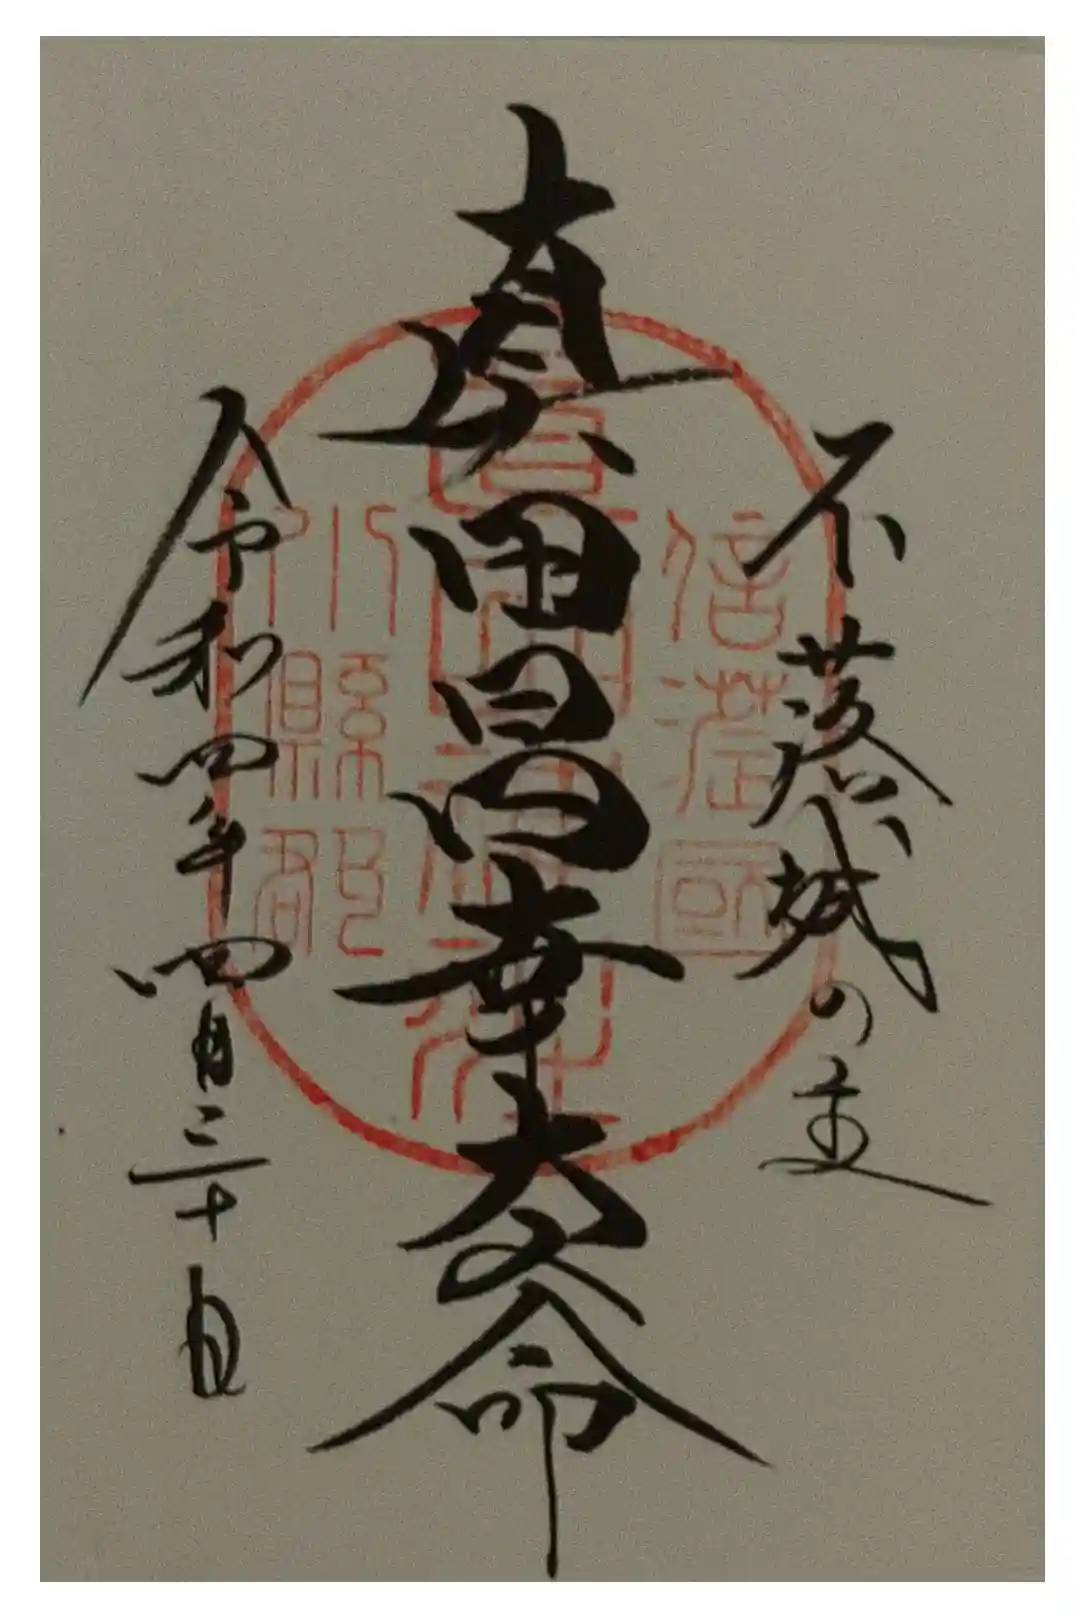 不落城の主
真田昌幸大命
令和四年四月三十日
信濃國
眞田神社
小縣郡